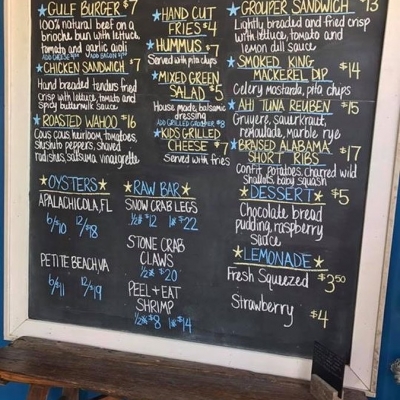 GULF BURGER $7
100% natural beef on a
brioche bun with lettuce,
tomato and garlic aioli
ADD CHEESE $1.00 ADD BACON $2.00
CHICKEN SANDWICH $7
Hand breaded tenders fried
crisp with lettuce, tomato and
Spicy buttermilk sauce
ROASTED WAHOO $16
Cous cous, heirloom tomatoes,
shishito peppers, shaved
radishes, salumia, vinaigrette
HAND CUT
FRIES $4
HUMMUS $7
Served with pita chips
MIXED GREEN
SALAD $5
House made, balsamic
dressing
ADD GRILLED GROUPER $8
KIDS GRILLED
CHEESE $7
Served with fries
GROUPER SANDWICH $13
Lightly breaded and fried crisp
with lettuce, tomato and
lemon dill sauce
SMOKED KING $14
MACKEREL DIP
Celery mostarda, pita chips
AHI TUNA REUBEN $15
Gruyere, sauerkraut,
remoulade, marble rye
BRAISED ALABAMA $17
SHORT RIBS
Confit potatoes, charred wild
shallots, baby squash
OYSTERS
APALACHICOLA, FL
6/$10 12/$18
PETITE BEACH, VA
6/$11 12/$19
RAW BAR
SNOW CRAB LEGS
½# $12 1# $22
STONE CRAB
CLAWS
½# $20
PEEL + EAT
SHRIMP
½# $8 1# $14
DESSERT $5
Chocolate bread
pudding, raspberry
sauce
LEMONADE
Fresh Squeezed $3.50
Strawberry $4